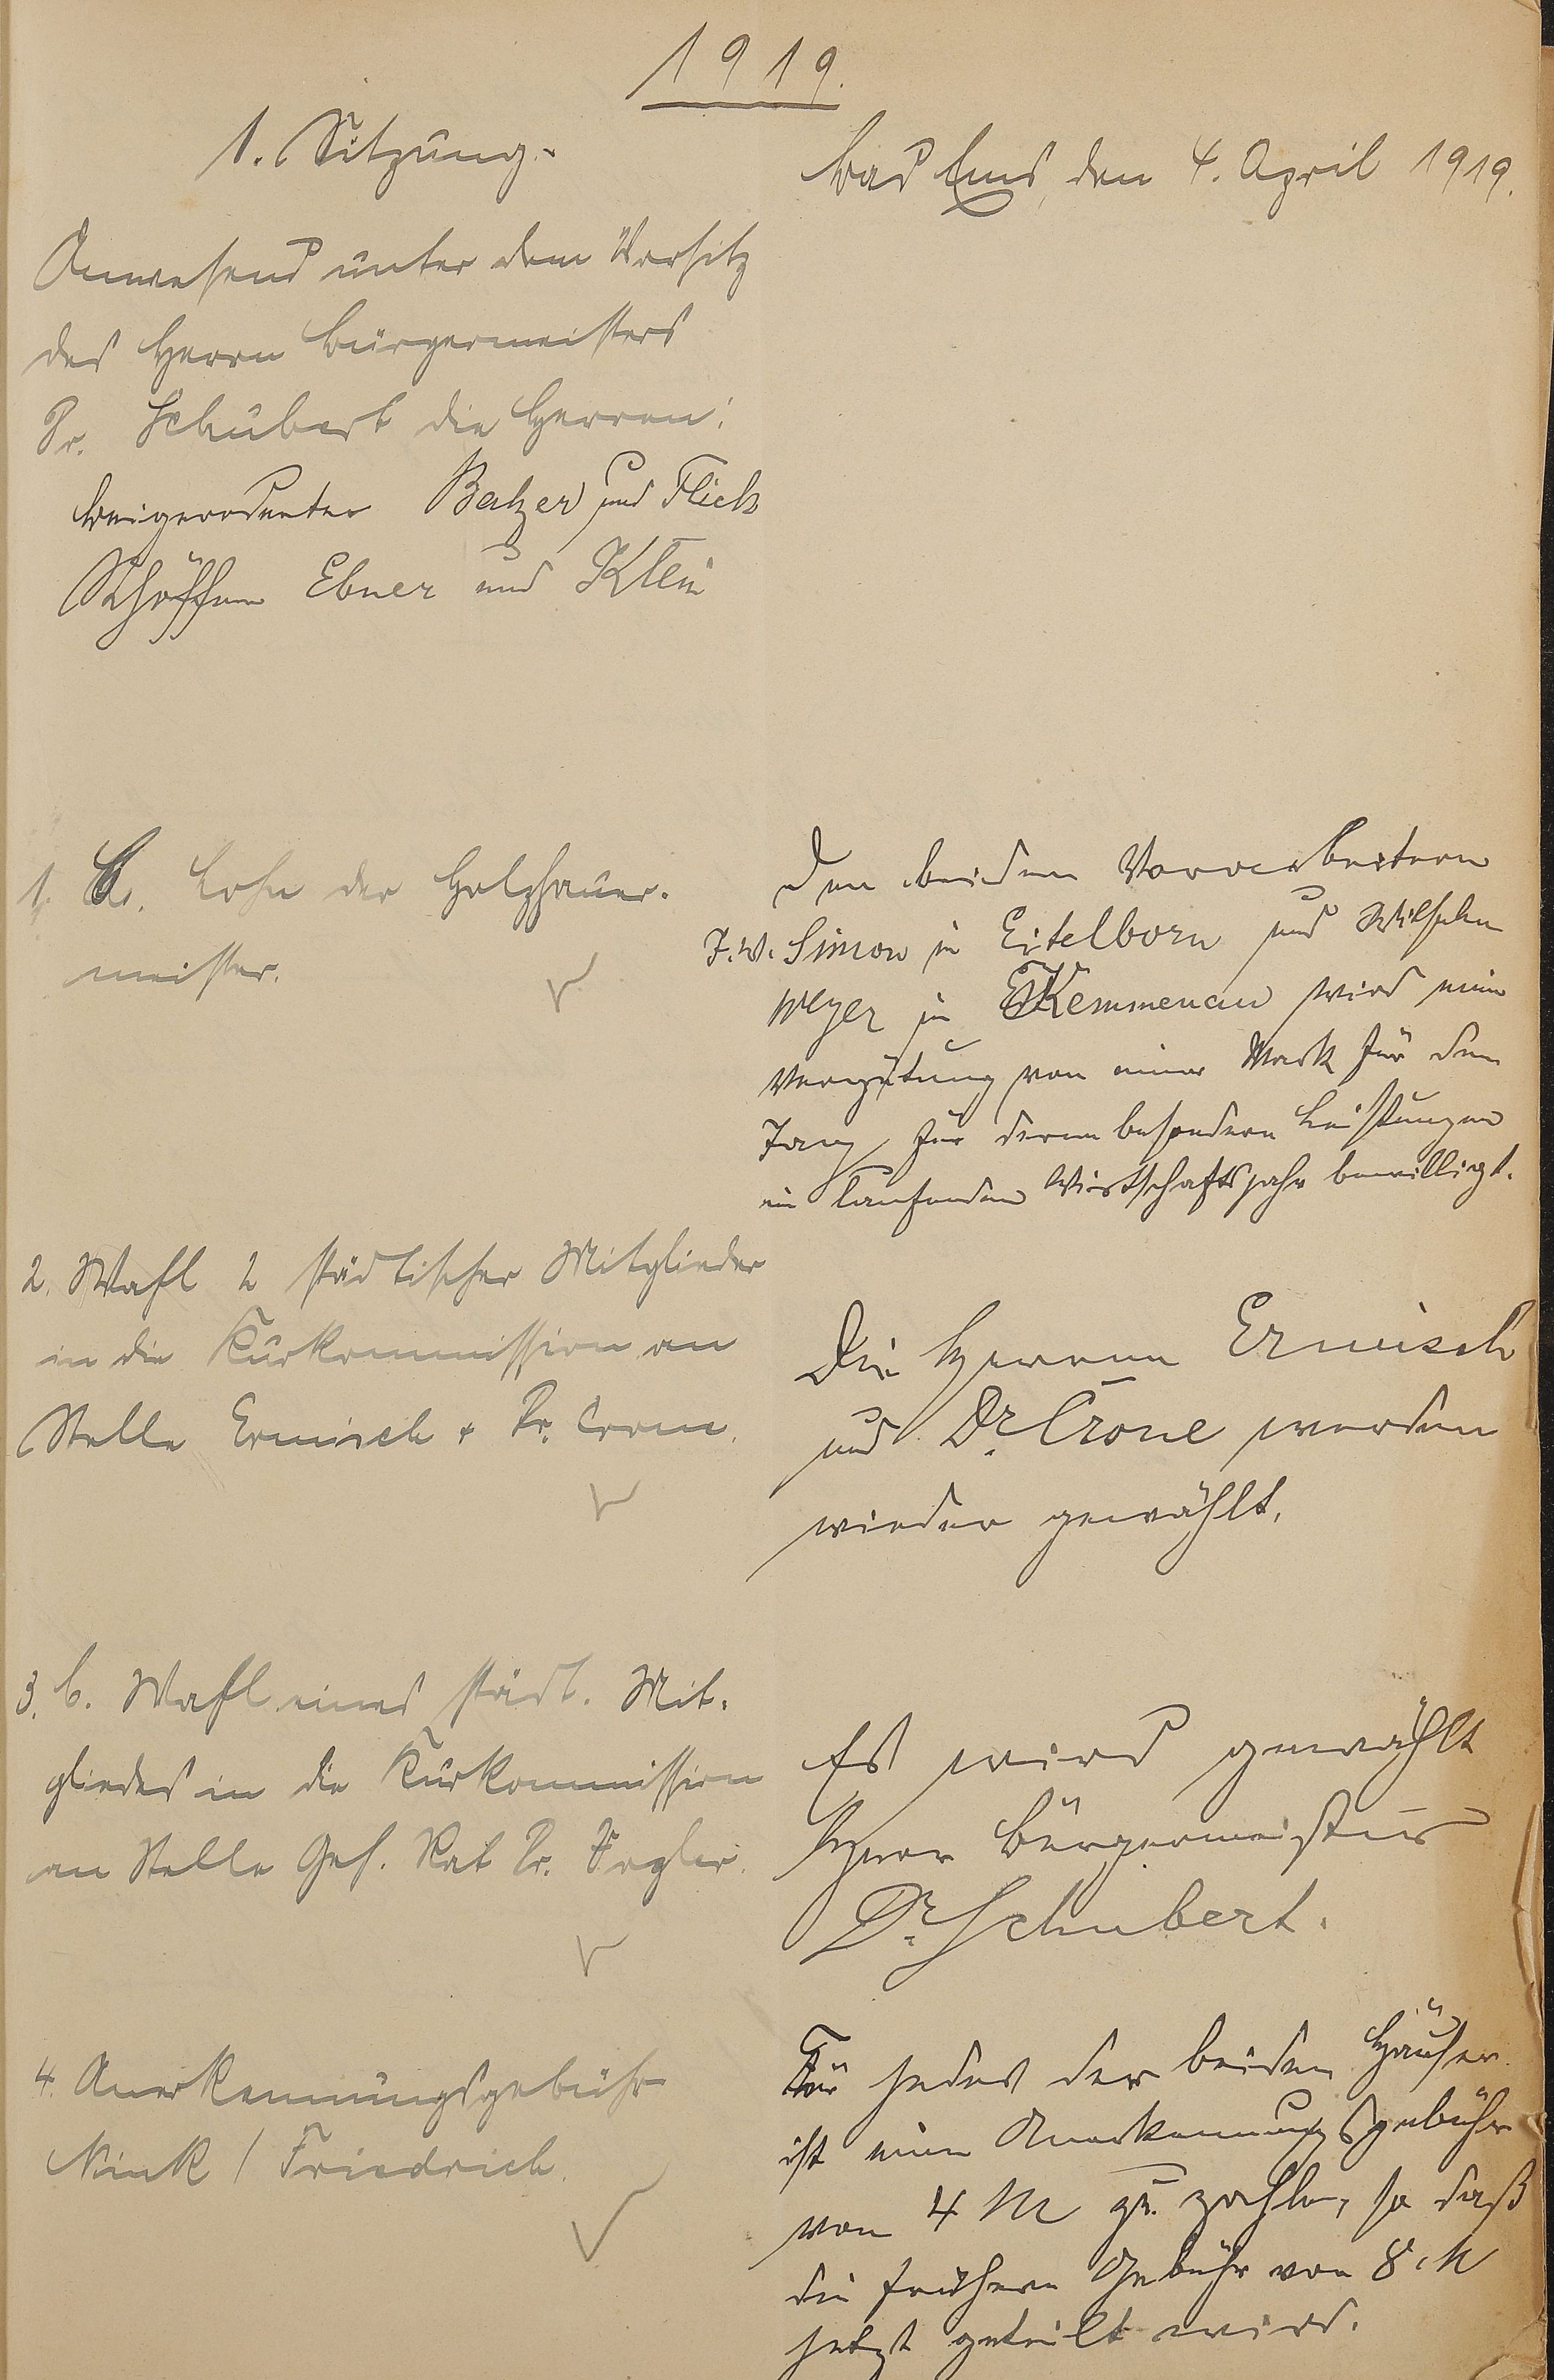 1919.
1. Sitzung.
Bad Ems, den 4. April 1919.
Anwesend unter dem Vorsitz
des Herrn Bürgermeisters
Dr. Schubert die Herren:
Beigeordneter Balzer und Flick
Schöffen Ebner und Klein
1. Lohn der Holzhauer-
meister.
Den beiden Vorarbeitern
J. W. Simon in Eitelborn und Wilhelm
Meyer in Kemmenau wird eine
Vergütung von einer Mark für den
Tag für deren besondere Leistungen
im laufenden Wirtschaftsjahr bewilligt.
2. Wahl 2 städtischer Mitglieder
in die Kurkommission an
Stelle Ermisch + Dr. Crone.
Die Herren Ermisch
und Dr. Crone werden
wieder gewählt.
3. b. Wahl eines städt. Mit-
gliedes in die Kurkommission
an Stelle Geh. Rat Dr. Vogler.
Es wird gewählt
Herr Bürgermeister
Dr. Schubert.
4. Anerkennungsgebühr
Nink / Friedrich.
Für jedes der beiden Häuser
ist eine Anerkennungsgebühr
von 4 M zu zahlen, so daß
die frühere Gebühr von 8 M
jetzt geteilt wird.